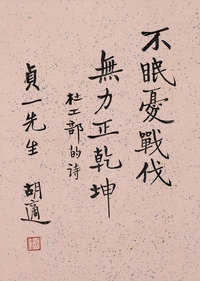 不眠憂戰伐
無力正乾坤
杜工部的詩
貞一先生
胡適